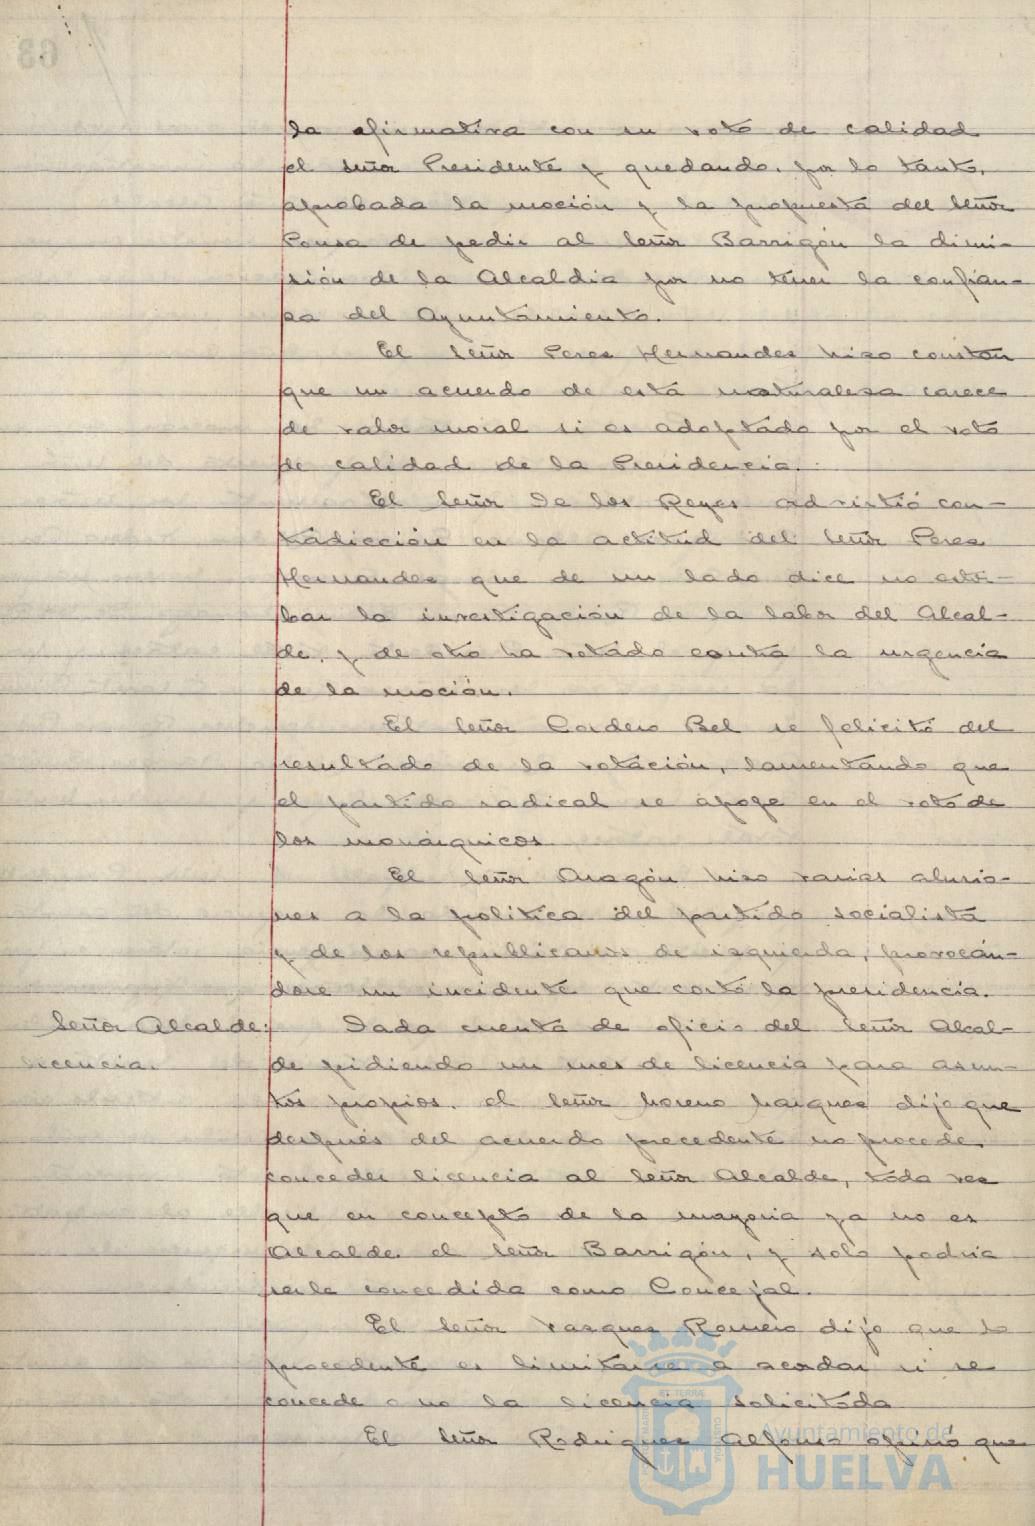 la afirmativa con su voto de calidad
el señor Presidente y quedando, por lo tanto,
aprobada la moción y la propuesta del señor
Ponsa de pedir al señor Barrigón la dimi-
sión de la Alcaldia por no tener la confian-
za del Ayuntamiento.
El señor Peres Hernandes hizo constar
que un acuerdo de esta naturalesa carece
de valor moral si es adoptado por el voto
de calidad de la Presidencia.
El señor De los Reyes advirtió con-
tradicción en la actitud del señor Peres
Hernandes que de un lado dice no estor-
bar la investigación de la labor del Alcal-
de, y de otro ha votado contra la urgencia
de la moción.
El señor Cordero Bel se felicitó del
resultado de la votación, lamentando que
el partido radical se apoye en el voto de
los monárquicos
El señor Aragón hizo varias alusio-
nes a la política del partido socialista
y de los republicanos de izquierda, provocán-
dose un incidente que cortó la presidencia.
Señor Alcalde:
licencia.
Dada cuenta de oficio del señor Alcal-
de pidiendo un mes de licencia para asun-
tos propios, el señor Moreno Marques dijo que
después del acuerdo precedente no procede
conceder licencia al señor Alcalde, toda vez
que en concepto de la mayoria ya no es
Alcalde el señor Barrigón, y solo podria
serle concedida como Concejal.
El señor Vasques Romero dijo que lo
procedente es limitarse a acordar si se
concede o no la licencia solicitada
El señor Rodriguez Alfonso opinó que
Ayuntamiento de
HUELVA
68